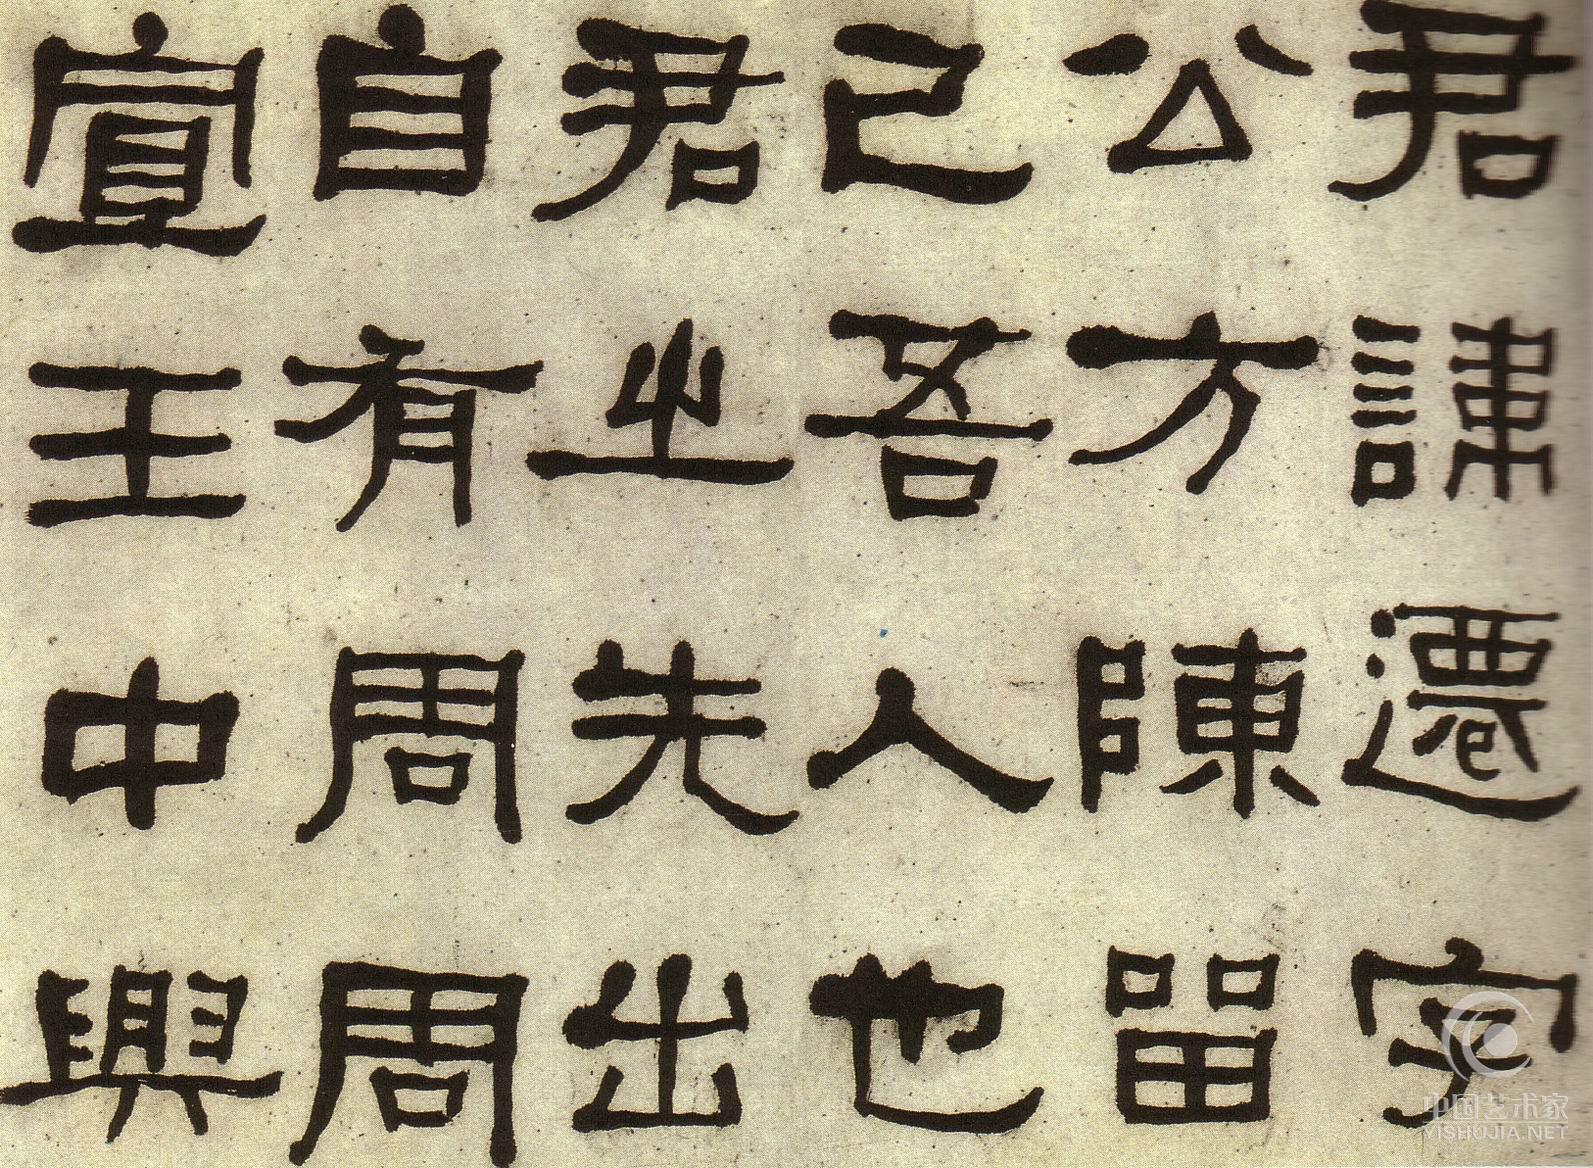 君諱遷字
公方陳留
己吾人也
君之先出
自有周周
宣王中興
中国艺术家
YISHUJIA.NET